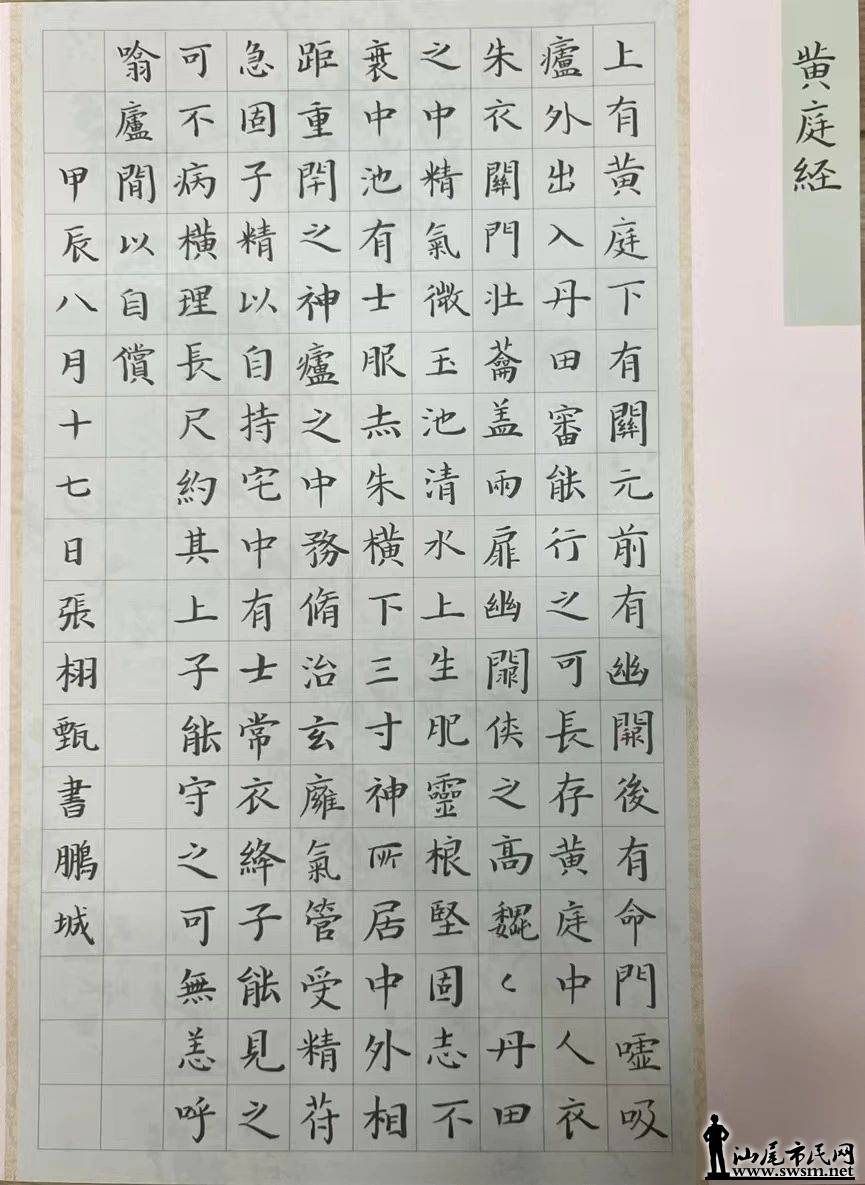 黄庭経
上有黄庭下有關元前有幽闕後有命門噓吸
廬外出入丹田審能行之可長存黄庭中人衣
朱衣關門壮蘥盖兩扉幽闕侠之高巍〻丹田
之中精氣微玉池清水上生肥靈根堅固志不
衰中池有士服赤朱横下三寸神所居中外相
距重閇之神廬之中務脩治玄廱氣管受精苻
急固子精以自持宅中有士常衣絳子能見之
可不病横理長尺約其上子能守之可無恙呼
噏廬間以自償
甲辰八月十七日張栩甄書鵬城
汕尾市民网
www.swsm.net